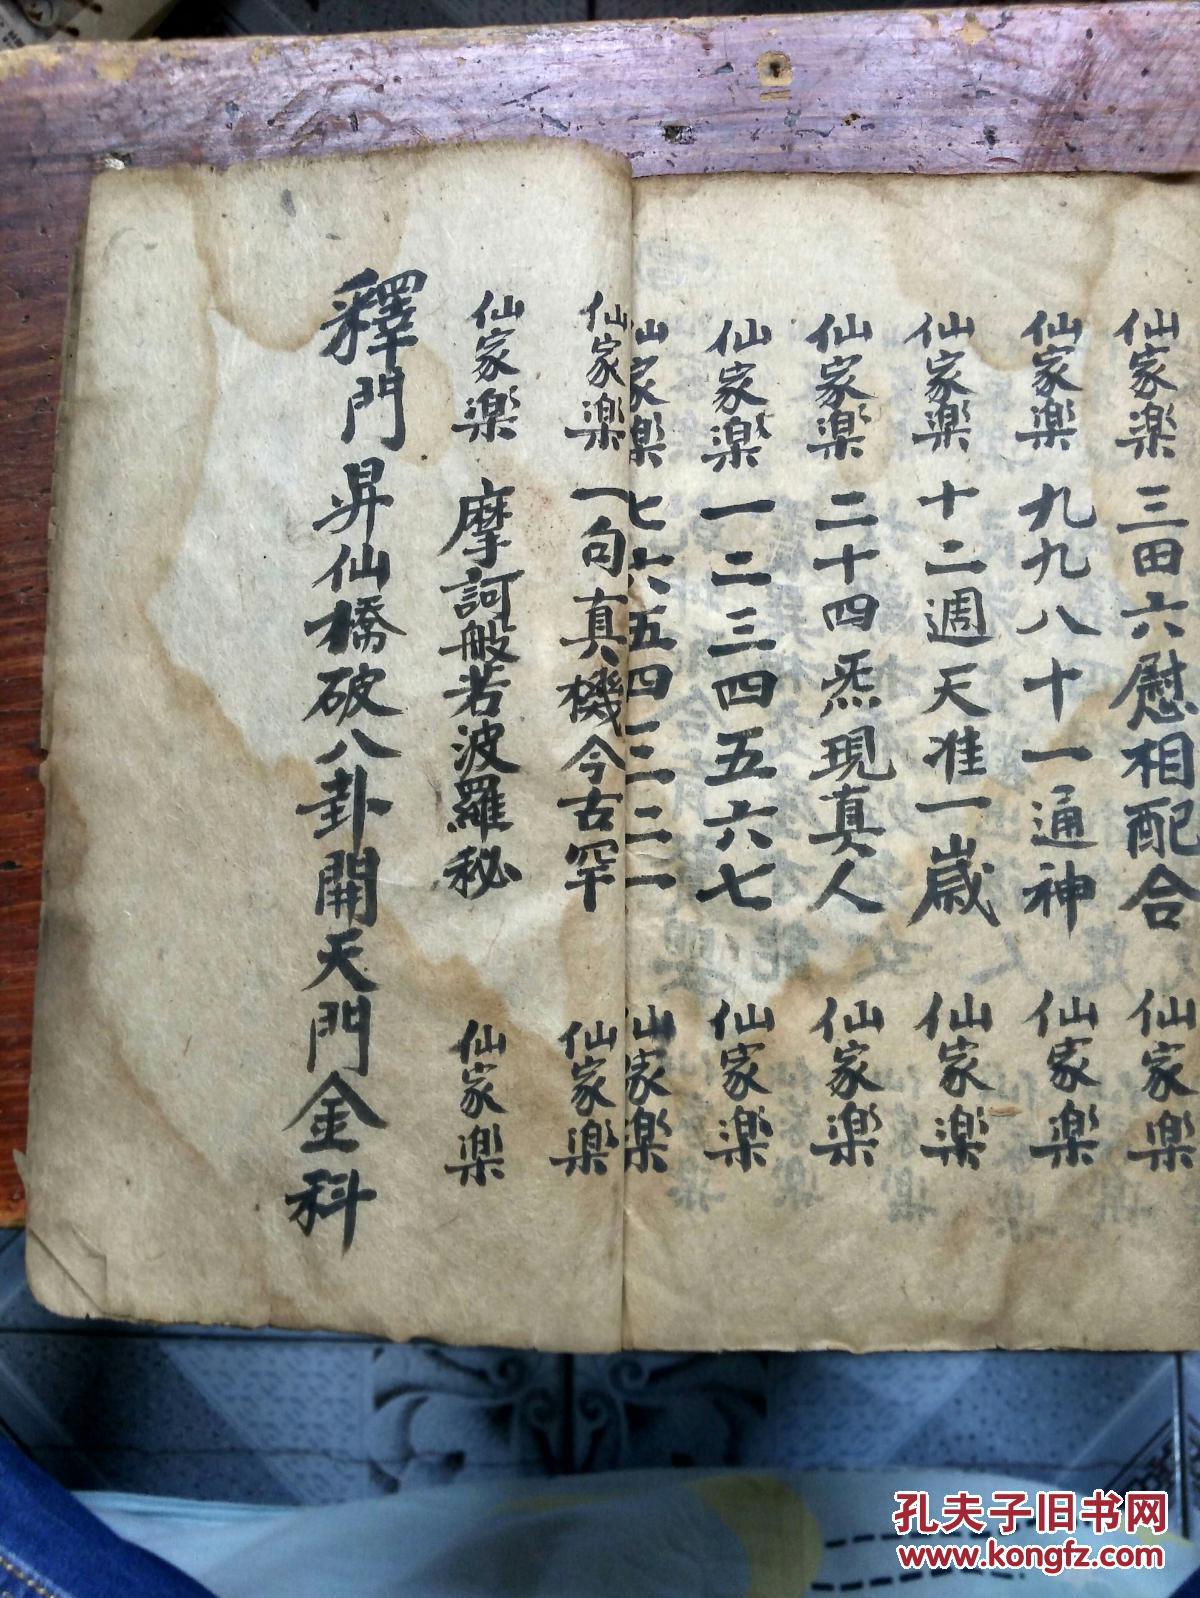 仙家楽 三田六慰相配合 仙家楽
仙家楽 九九八十一通神 仙家楽
仙家楽 十二週天准一歲 仙家楽
仙家楽 二十四炁現真人 仙家楽
仙家楽 一二三四五六七 仙家楽
仙家楽 七六五四三二一 仙家楽
仙家楽 一句真機今古罕 仙家楽
仙家楽 摩訶般若波羅秘 仙家楽
釋門昇仙橋破八卦開天門金科
孔夫子旧书网
www.kongfz.com